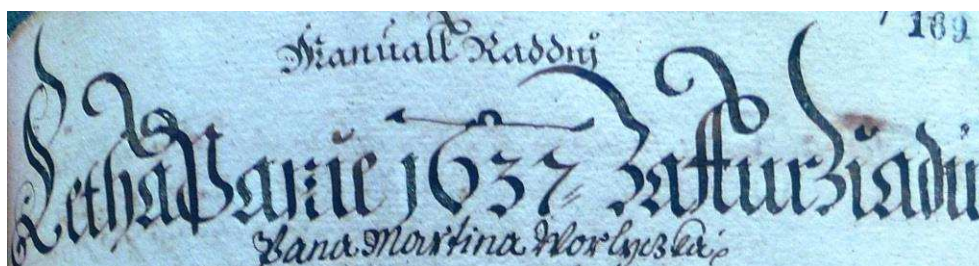 189
Manuall Raddnj
Letha Panie 1637 Za ffurziadu
Pana Martina Worlyczka